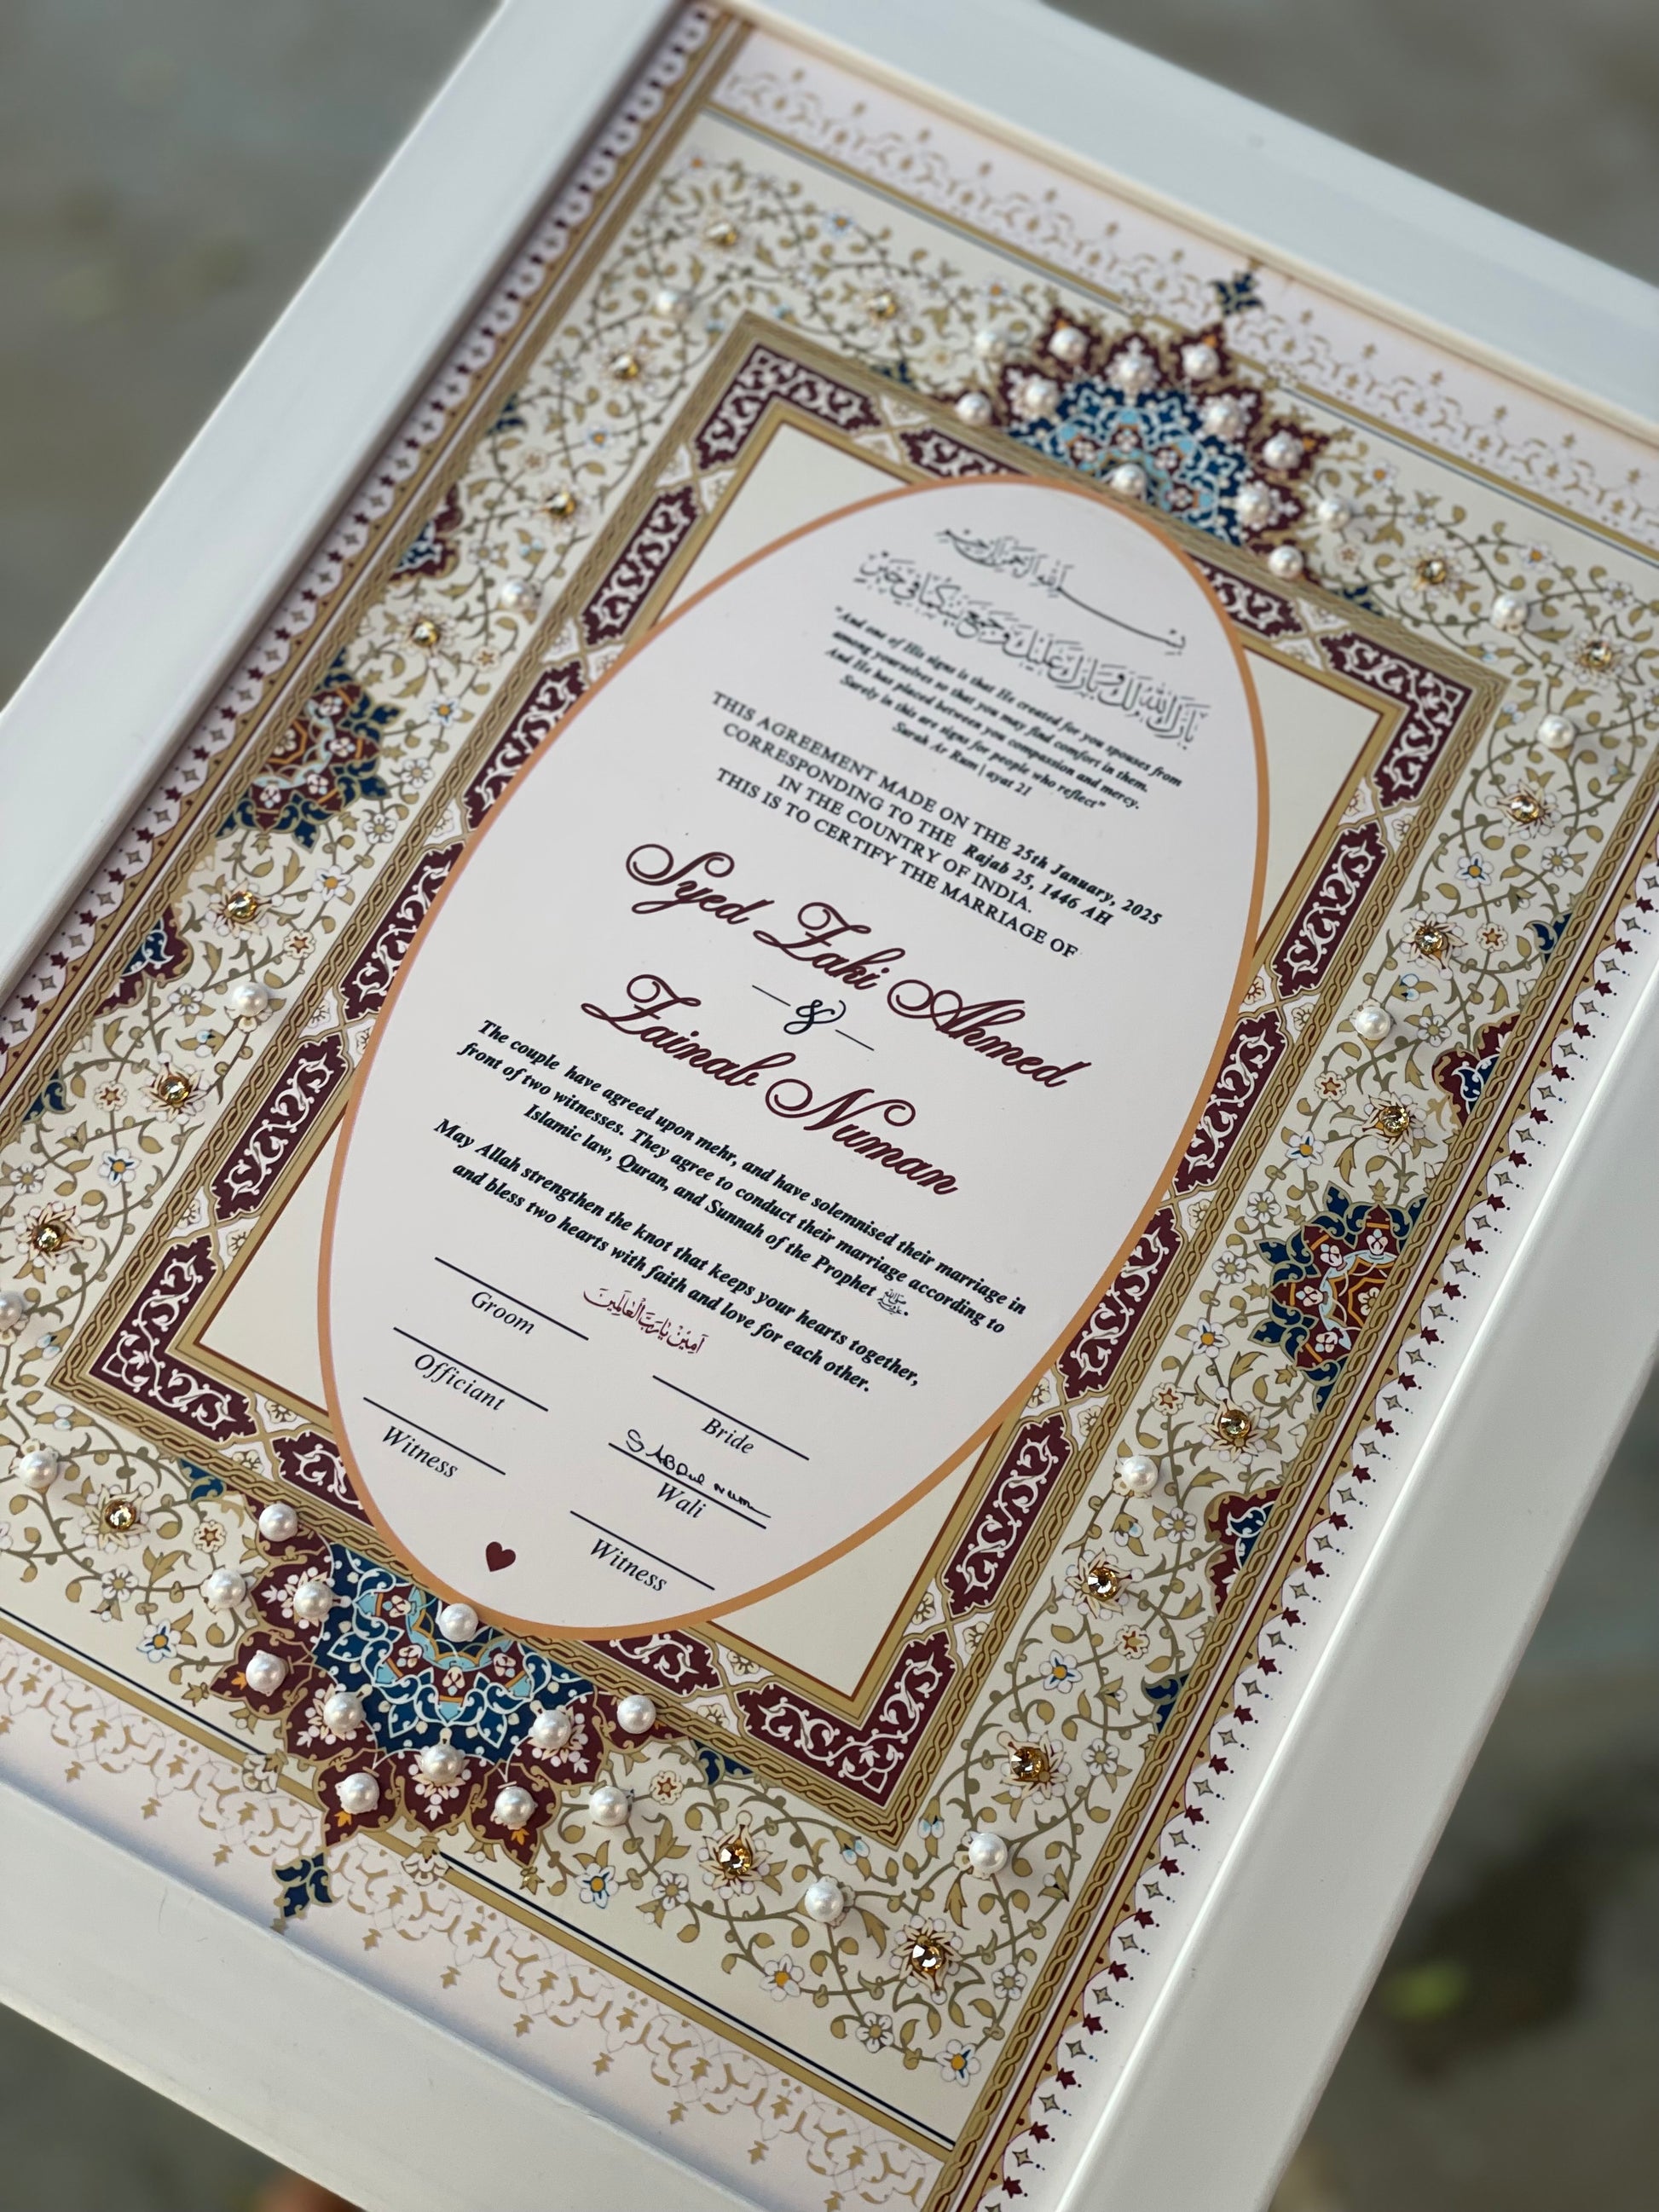 بِسْمِ اللهِ الرَّحْمٰنِ الرَّحِيْمِ
بَارَكَ اللهُ لَكَ وَبَارَكَ عَلَيْكَ وَجَمَعَ بَيْنَكُمَا فِي خَيْرٍ
"And one of His signs is that He created for you spouses from
among yourselves so that you may find comfort in them.
And He has placed between you compassion and mercy.
Surely in this are signs for people who reflect"
Surah Ar Rum | ayat 21
THIS AGREEMENT MADE ON THE 25th January, 2025
CORRESPONDING TO THE Rajab 25, 1446 AH
IN THE COUNTRY OF INDIA.
THIS IS TO CERTIFY THE MARRIAGE OF
Syed Zaki Ahmed
&
Zainab Numan
The couple have agreed upon mehr, and have solemnised their marriage in
front of two witnesses. They agree to conduct their marriage according to
Islamic law, Quran, and Sunnah of the Prophet ﷺ.
May Allah strengthen the knot that keeps your hearts together,
and bless two hearts with faith and love for each other.
اٰمِيْنْ يَارَبَّ الْعَالَمِيْنَ
Groom
Bride
Officiant
S Abdul
Wali
Witness
Witness